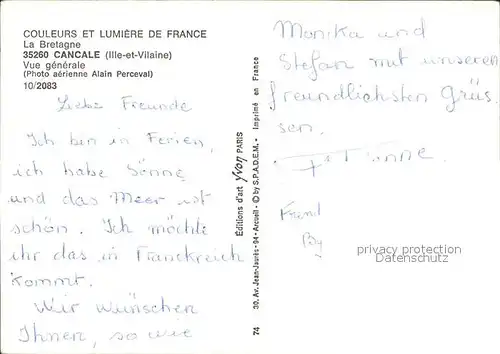 COULEURS ET LUMIÈRE DE FRANCE
La Bretagne
35260 CANCALE (Ille-et-Vilaine)
Vue générale
(Photo aérienne Alain Perceval)
10/2083
Liebe Freunde
Ich bin in Ferien,
ich habe Sonne
und das Meer ist
schön. Ich möchte
ihr das in Franckreich
kommt.
Wir wünschen
Ihnen, so wie
Editions d'art Yvon PARIS
30, Av. Jean-Jaurès - 94 - Arcueil - © by S.P.A.D.E.M. - Imprimé en France
74
Monika und
Stefan mit unseren
freundlichsten Grüs
sen.
privacy protection
Datenschutz